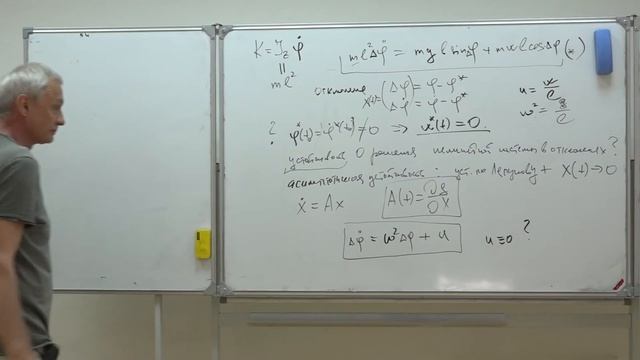 K = J_z φ̇
"
ml²
ml²Δφ̈ = mglsinΔφ + mwlcosΔφ (*)
отклонение X(t) = (Δφ = φ - φ* Δφ̇ = φ̇ - φ̇*)
u = w/l
ω² = g/l
? φ*(t) = φ̇*(t) ≠ 0 => w*(t) = 0
устойчивость 0 решения нелинейной системы в отклонениях?
асимптотическая устойчивость: уст. по Ляпунову + X(t) → 0
ẋ = Ax
A(t) = ∂g/∂x
Δφ̈ = ω²Δφ + u
u ≡ 0 ?